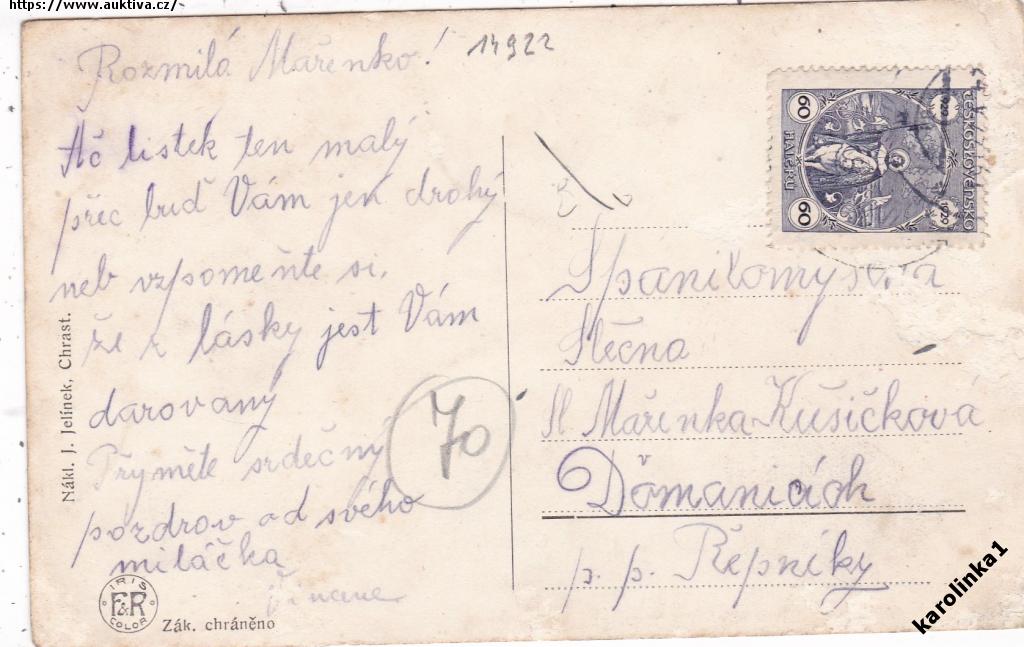 https://www.auktiva.cz/
Rozmilá Mařenko!
14922
Ač lístek ten malý
přec buď Vám jen drohý
neb vzpomeňte si,
že z lásky jest Vám
darovaný
Přyměte srdečný
pozdrov od svého
miláčka
70
ČESKOSLOVENSKO
1920 1929
60 HALÉŘŮ 60
Slečna
Sl Mařenka Kusičková
Domanicích
p. p. Řepníky
Nákl. J. Jelínek, Chrast.
IRIS
F&R
COLOR
Zák. chráněno
karolinka1